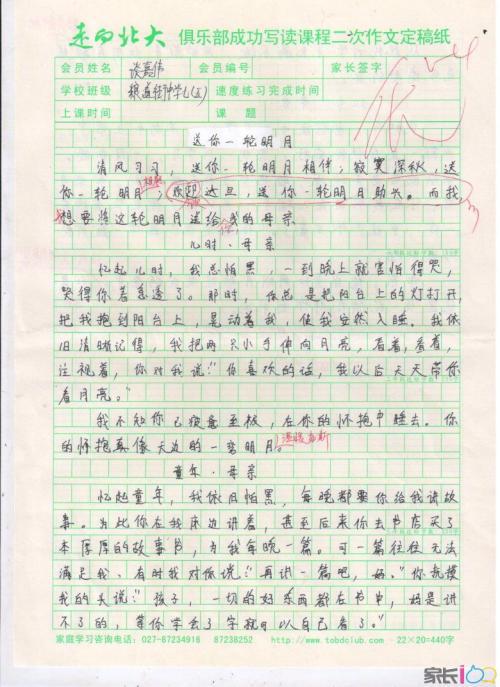 走向北大 俱乐部成功写读课程二次作文定稿纸
会员姓名 谈嘉伟 会员编号 家长签字
学校班级 速度练习完成时间
上课时间 课题
送你一轮明月
清风习习，送你一轮明月相伴；寂寞深秋，送
你一轮明月；欢迎达旦，送你一轮明月助兴。而我，
想要将这轮明月送给我的母亲
儿时·母亲
忆起儿时，我总怕黑，一到晚上就害怕得哭，
哭得你着急透了。那时，你总是把阳台上的灯打开，
把我抱到阳台上，晃动着我，使我安然入睡。我依
旧清晰记得，我把两只小手伸向月亮，看着，看着，
注视着，你对我说："你喜欢的话，我以后天天带你
看月亮。"
我不知你已疲惫至极，在你的怀抱中睡去。你
的怀抱真像天边的一弯明月。
童年·母亲
忆起童年，我依旧怕黑，每晚都要你给我讲故
事。为此你在我床边讲着，甚至后来你去书店买了
本厚厚的故事书，为我每晚一篇。可一篇往往无法
满足我、有时我对你说："再讲一篇吧，妈。"你抚摸
我的头说："孩子，一切的好东西都在书中，妈是讲
不了的，等你学会了字就可以自己看了。"
家庭学习咨询电话：027-87234916 87238252 http://www.tobdclub.com 22×20=440字
家长100